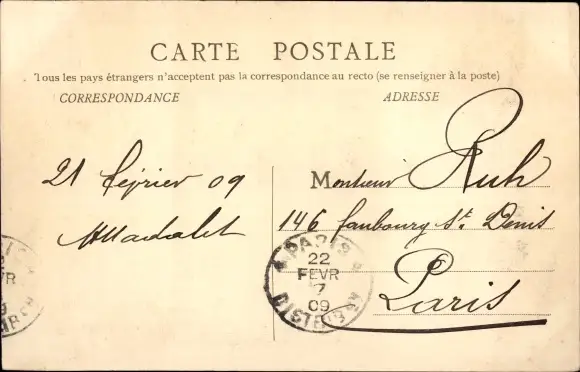 CARTE POSTALE
Tous les pays étrangers n'acceptent pas la correspondance au recto (se renseigner à la poste)
CORRESPONDANCE
ADRESSE
21 février 09
Monsieur Ruh
146 faubourg St. Denis
Paris
PARIS
22
FEVR
7
09
DISTRIB